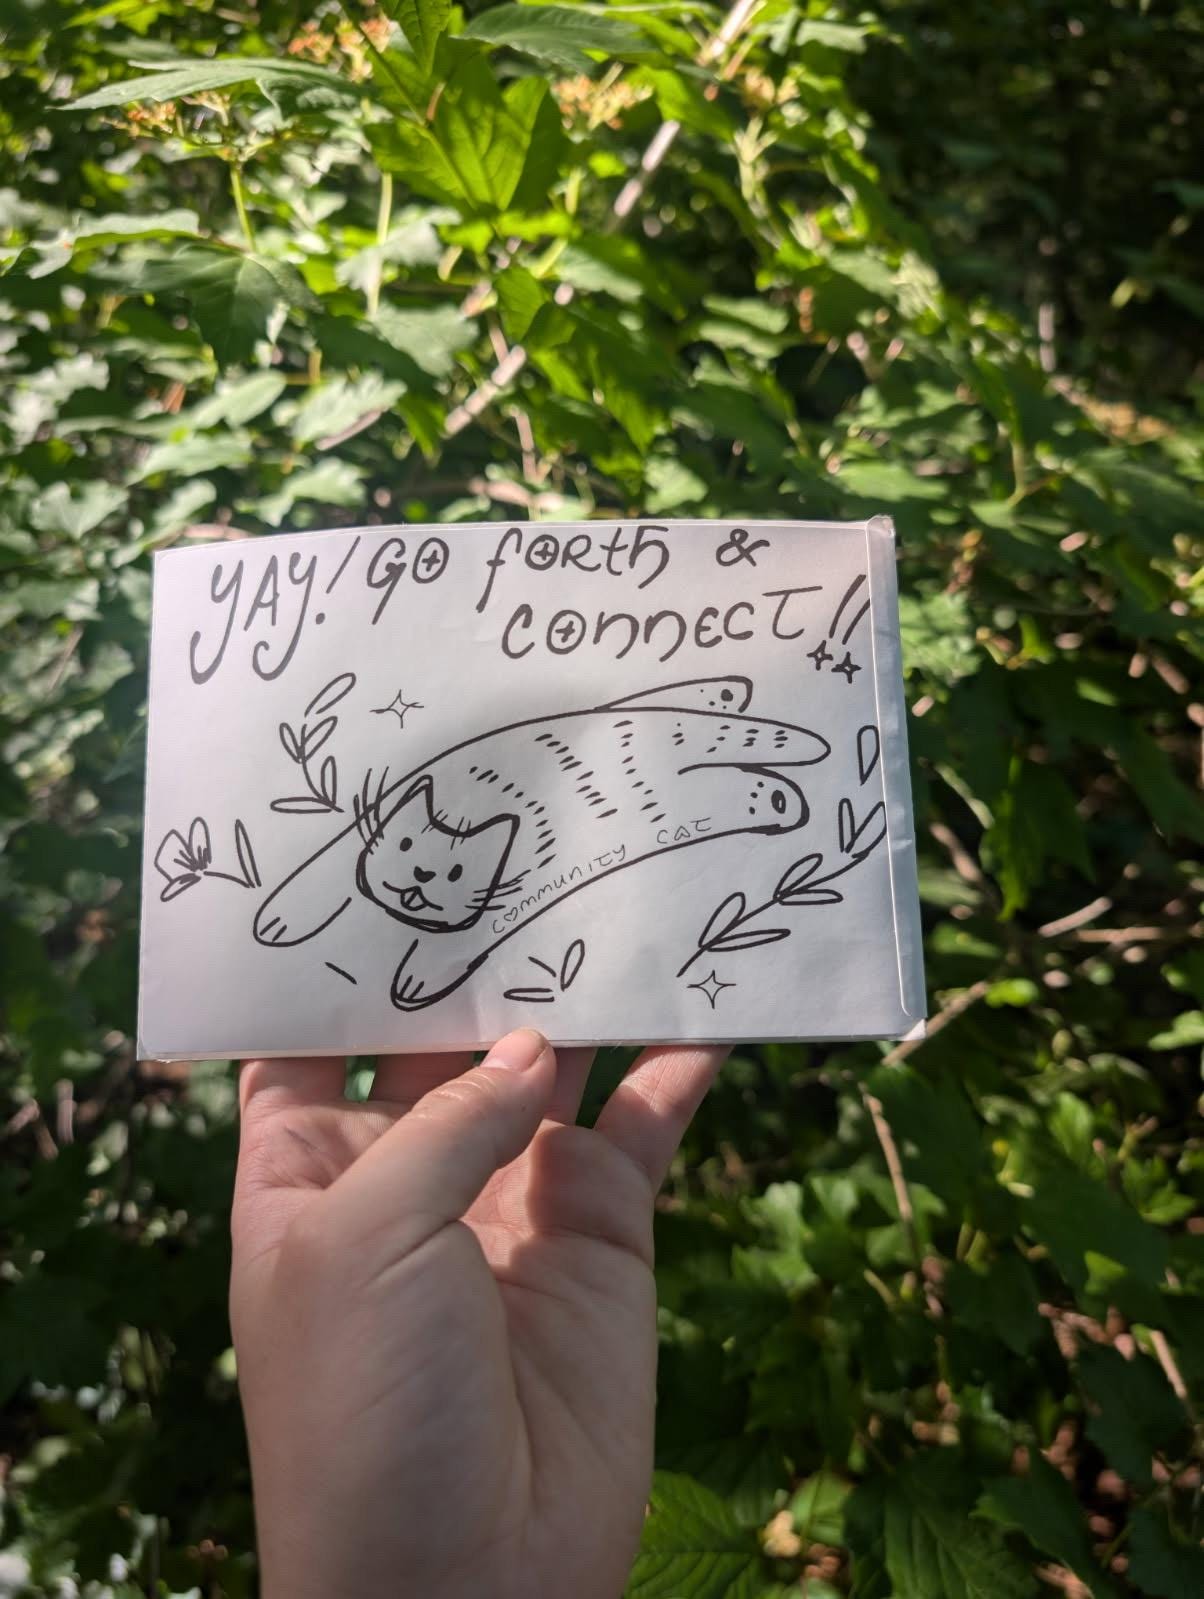 YAY! GO fORth &
CONNECT!!
COMMUNITY CAT